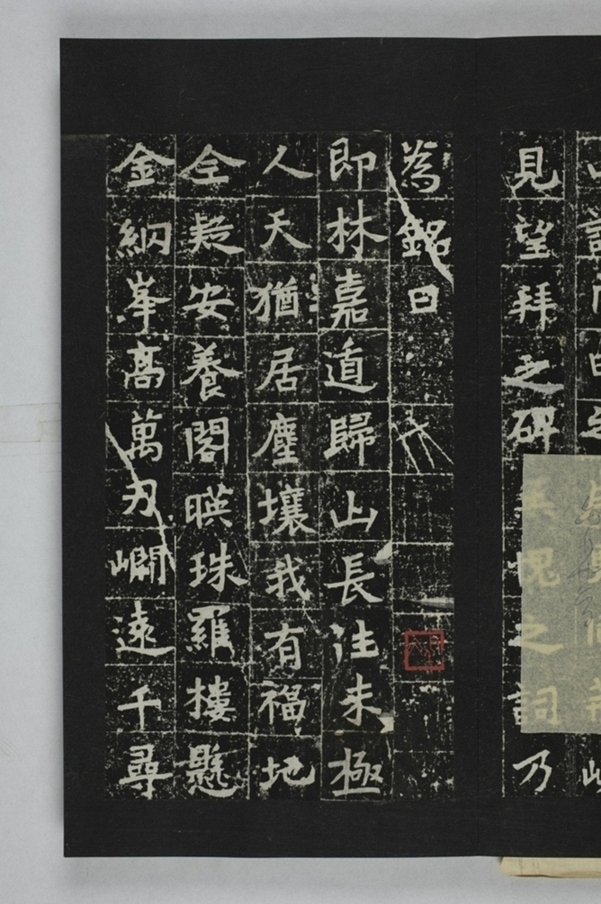 見望拜之碑愧之詞乃
為銘曰
即林嘉道歸山長往未極
人天猶居塵壤我有福地
仝疑安養閣暎珠羅樓懸
金納峯高萬刃遠千尋